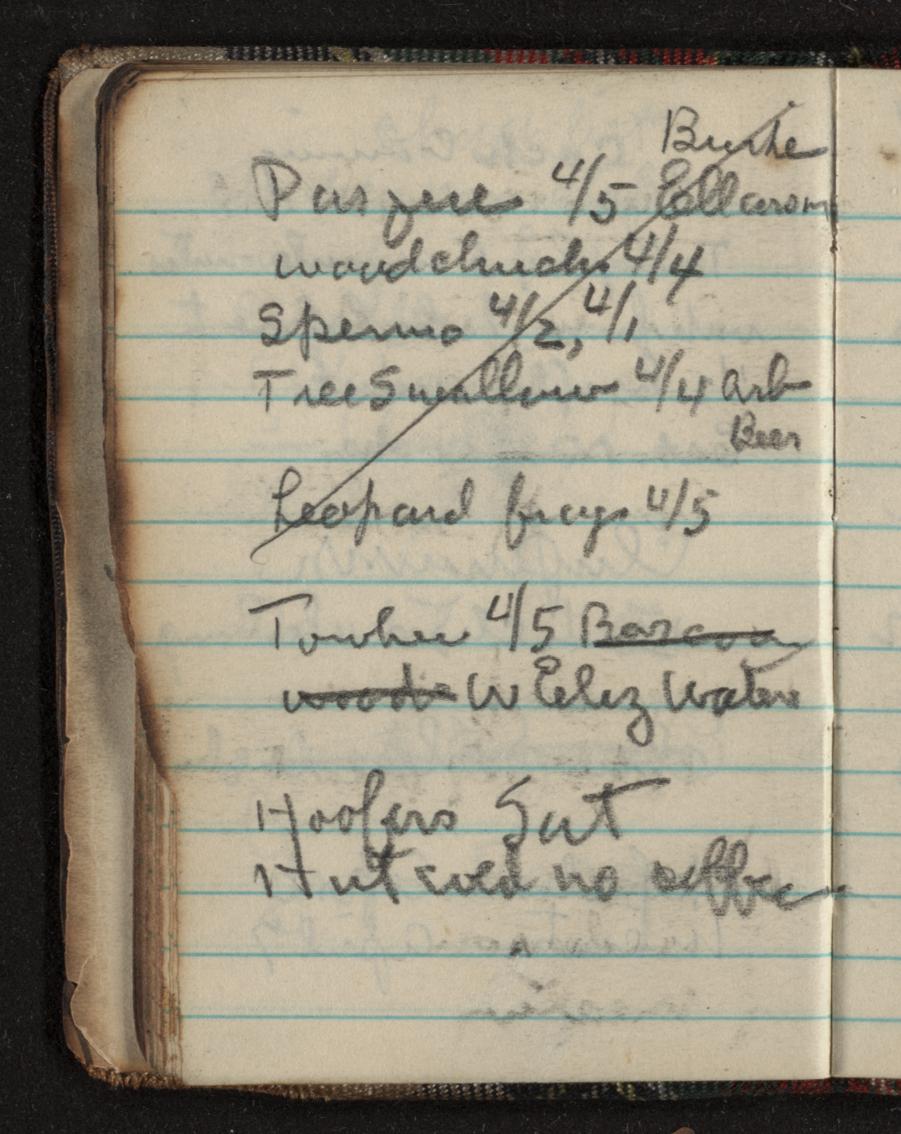 Burke
Pasque 4/5 Ellarson
woodchuck 4/4
Spermo 4/2, 4/1
Tree Swallow 4/4 Arb
Beer
Leopard frogs 4/5
Towhee 4/5
woods W Eliz Waters
Hoofers Sat
Hut no